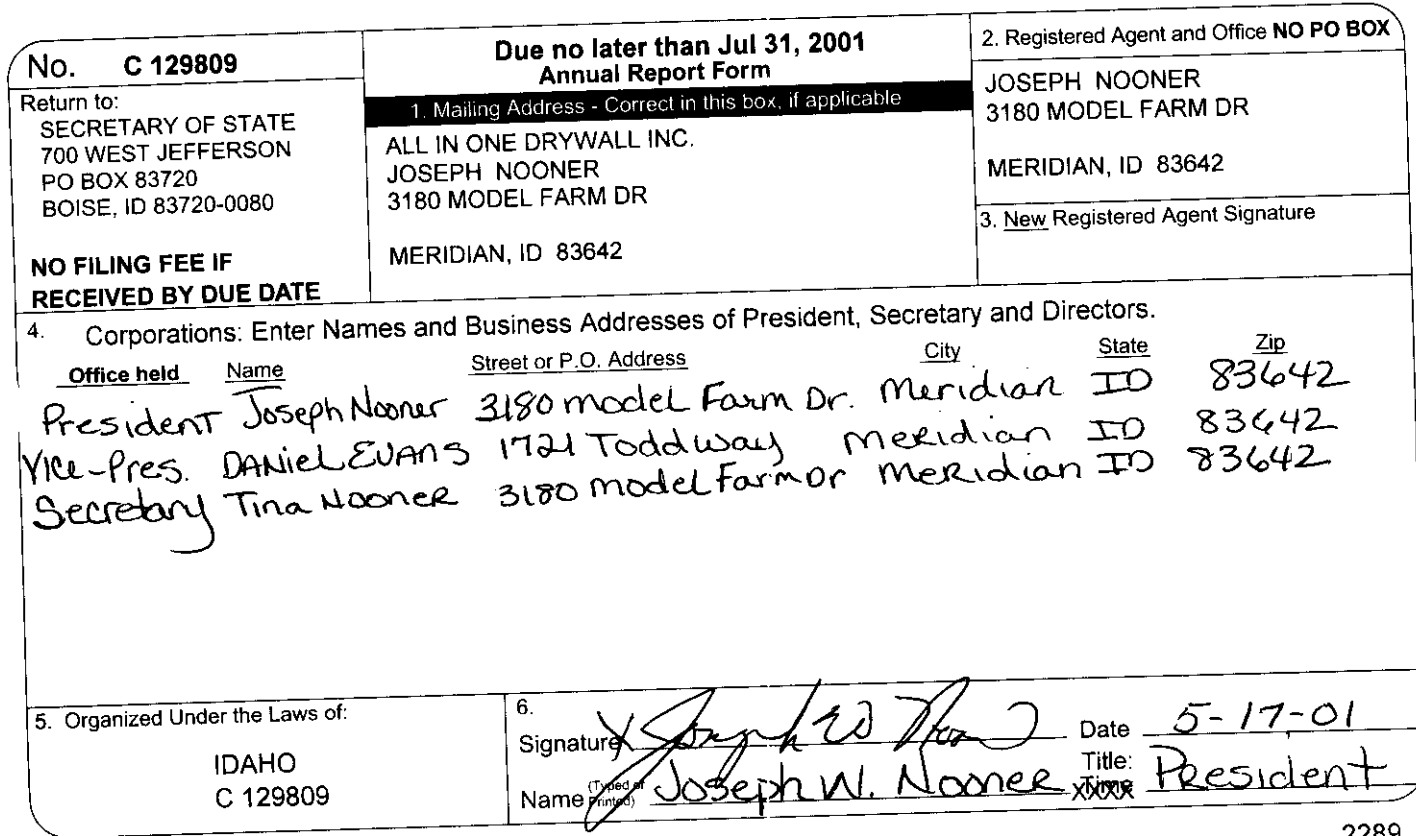 No. C 129809
Return to:
SECRETARY OF STATE
700 WEST JEFFERSON
PO BOX 83720
BOISE, ID 83720-0080
NO FILING FEE IF
RECEIVED BY DUE DATE
Due no later than Jul 31, 2001
Annual Report Form
1. Mailing Address - Correct in this box, if applicable
ALL IN ONE DRYWALL INC.
JOSEPH NOONER
3180 MODEL FARM DR
MERIDIAN, ID 83642
2. Registered Agent and Office NO PO BOX
JOSEPH NOONER
3180 MODEL FARM DR
MERIDIAN, ID 83642
3. New Registered Agent Signature
4. Corporations: Enter Names and Business Addresses of President, Secretary and Directors.
Office held Name Street or P.O. Address City State Zip
President Joseph Nooner 3180 model Farm Dr. Meridian ID 83642
Vice-Pres. DANiel EVANS 1721 Todd way Meridian ID 83642
Secretary Tina Nooner 3180 model Farm Dr Meridian ID 83642
5. Organized Under the Laws of:
IDAHO
C 129809
6.
Signature X Joseph W Nooner Date 5-17-01
Name (Typed or Printed) Joseph W. Nooner Title: President
2289